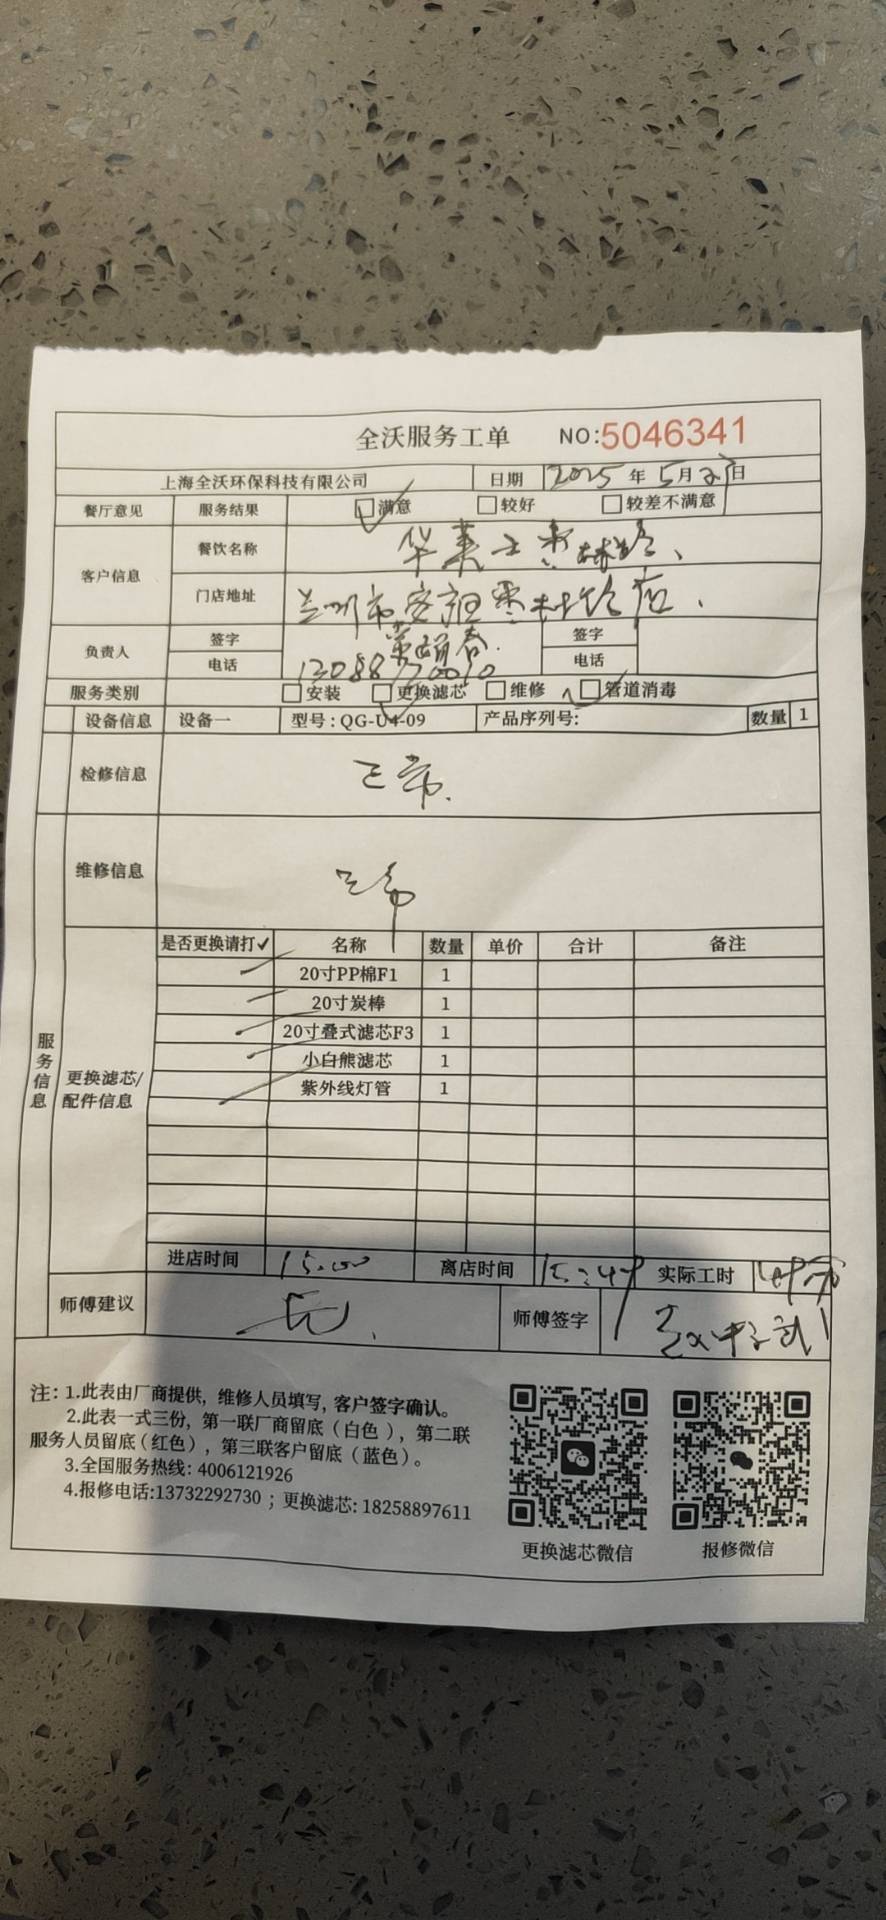 全沃服务工单 NO:5046341
上海全沃环保科技有限公司 日期 2025年5月27日
餐厅意见 服务结果 满意 较好 较差不满意
客户信息 餐饮名称 华莱士枣林路
门店地址 兰州市安宁区枣林路店
负责人 签字 签字
电话 电话
服务类别 安装 更换滤芯 维修 管道消毒
设备信息 设备一 型号:QG-U4-09 产品序列号: 数量 1
检修信息 正常.
维修信息 正常
服务信息
更换滤芯/配件信息
是否更换请打✓ 名称 数量 单价 合计 备注
20寸PP棉F1 1
20寸炭棒 1
20寸叠式滤芯F3 1
小白熊滤芯 1
紫外线灯管 1
进店时间 15:00 离店时间 实际工时
师傅建议 无. 师傅签字
注: 1.此表由厂商提供, 维修人员填写, 客户签字确认。
2.此表一式三份, 第一联厂商留底(白色), 第二联
服务人员留底(红色), 第三联客户留底(蓝色)。
3.全国服务热线: 4006121926
4.报修电话:13732292730 ; 更换滤芯: 18258897611
更换滤芯微信 报修微信